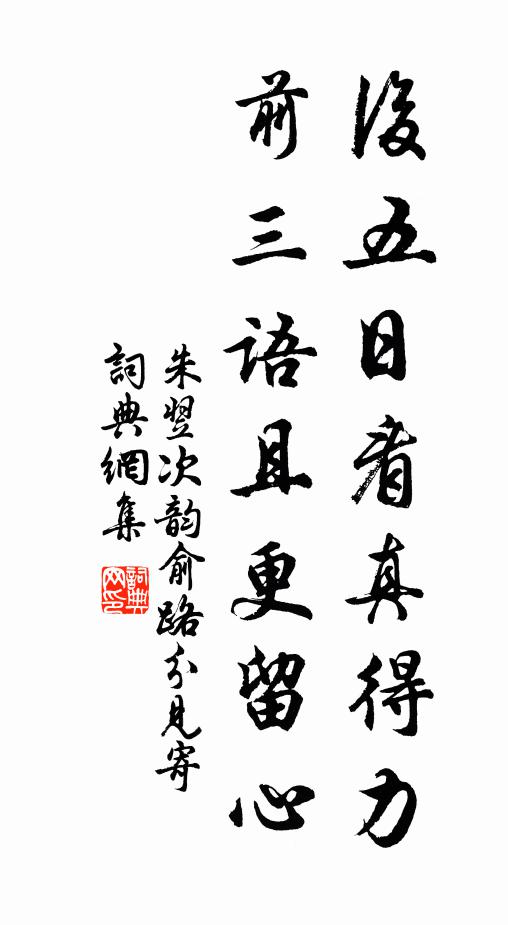 後五日看真得力
前三語且更留心
朱翌次韵俞路分見寄
詞典網集
詞典網印